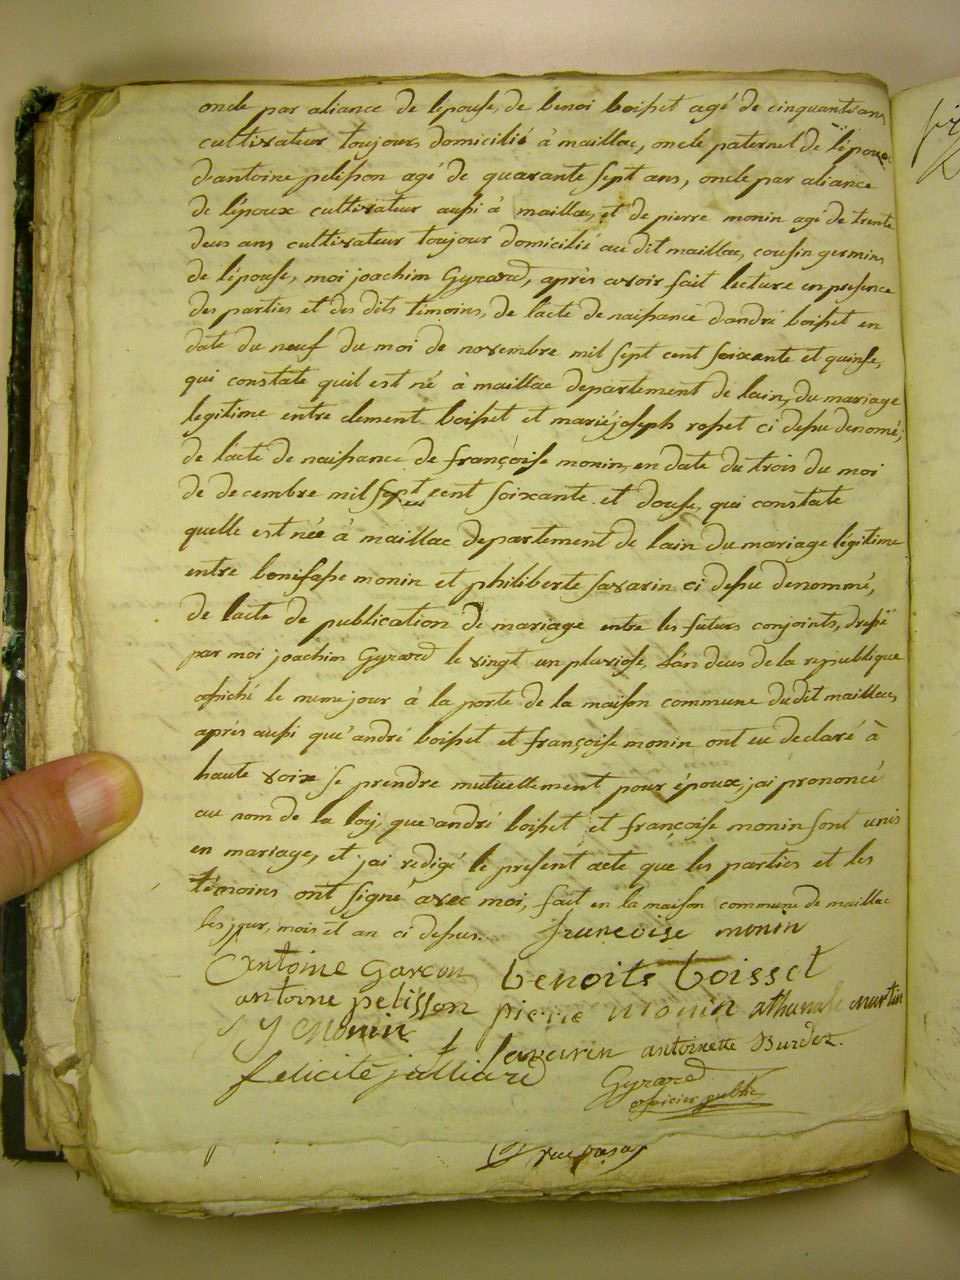 oncle par aliance de lepouse, de benoi boisset agé de cinquante ans
cultivateur toujours domicilié à maillac, oncle paternel de l'époux
d'antoine pelisson agé de quarante sept ans, oncle par aliance
de l'époux cultivateur aussi à maillac, et de pierre monin agé de trente
deus ans cultivateur toujour domicilié au dit maillac, cousin germins
de l'épouse, moi joachim Gyrard, après avoir fait lecture en presence
des parties et des dits témoins, de l'acte de naissance d'andré boisset en
date du neuf du moi de novembre mil sept cent soixante et quinse,
qui constate quil est né à maillac departement de lain, du mariage
legitime entre clement boisset et marie joseph rosset ci dessu denomé;
de lacte de naissance de françoise monin, en date du trois du moi
de decembre mil sept cent soixante et douse, qui constate
quelle est née à maillac departement de lain du mariage légitime
entre bonifasse monin et philiberte savarin ci dessu denommé,
de lacte de publication de mariage entre les futurs conjoints, dressé
par moi joachim Gyrard le vingt un pluviose, l'an deus de la republique
affiché le meme jour à la porte de la maison commune dudit maillac,
après aussi que andré boisset et françoise monin ont eu declaré à
haute voix se prendre mutuellement pour époux, jai prononcé
au nom de la loy que andré boisset et françoise monin sont unis
en mariage, et jai redigé le present acte que les parties et les
témoins ont signé avec moi, fait en la maison commune de maillac
les jour, mois et an ci dessus. françoise monin
Antoine Garcon benoits boisset
antoine pelisson pierre monin athanale martin
Monin savarin antoinette Burdet.
felicité jalliard Gyrard
officier public